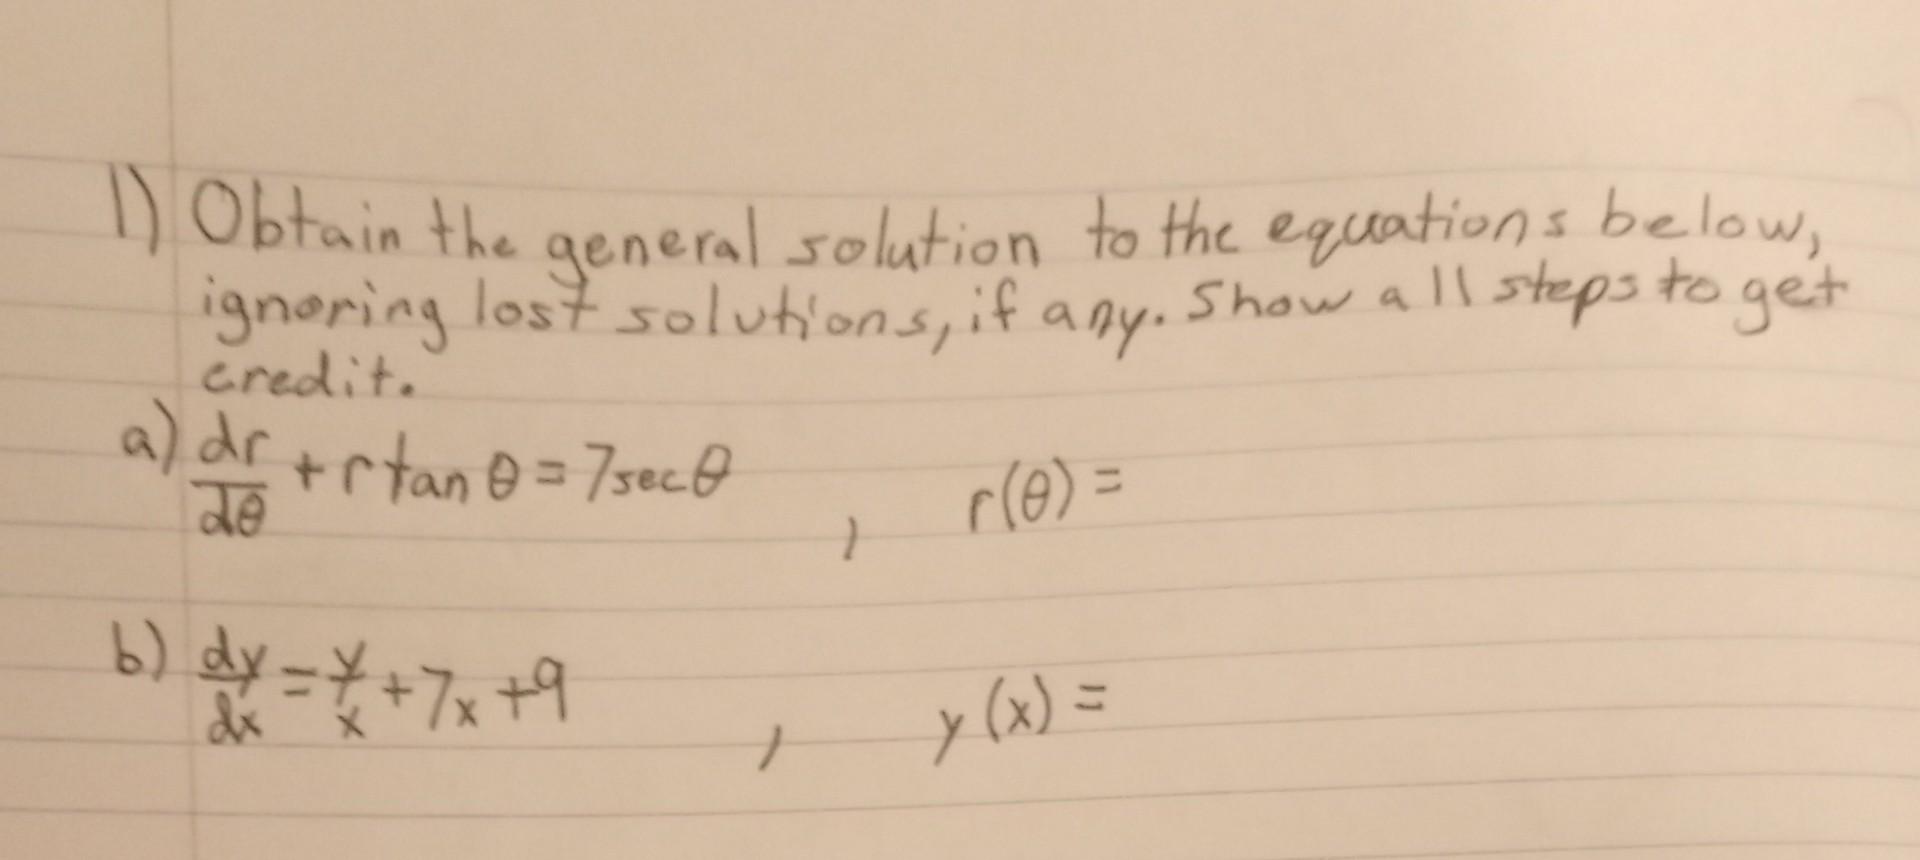 1) Obtain the general solution to the equations below,
ignoring lost solutions, if any. Show all steps to get
credit.
a) dr/dθ + r tan θ = 7 sec θ , r(θ) =
b) dy/dx = y/x + 7x + 9 , y(x) =